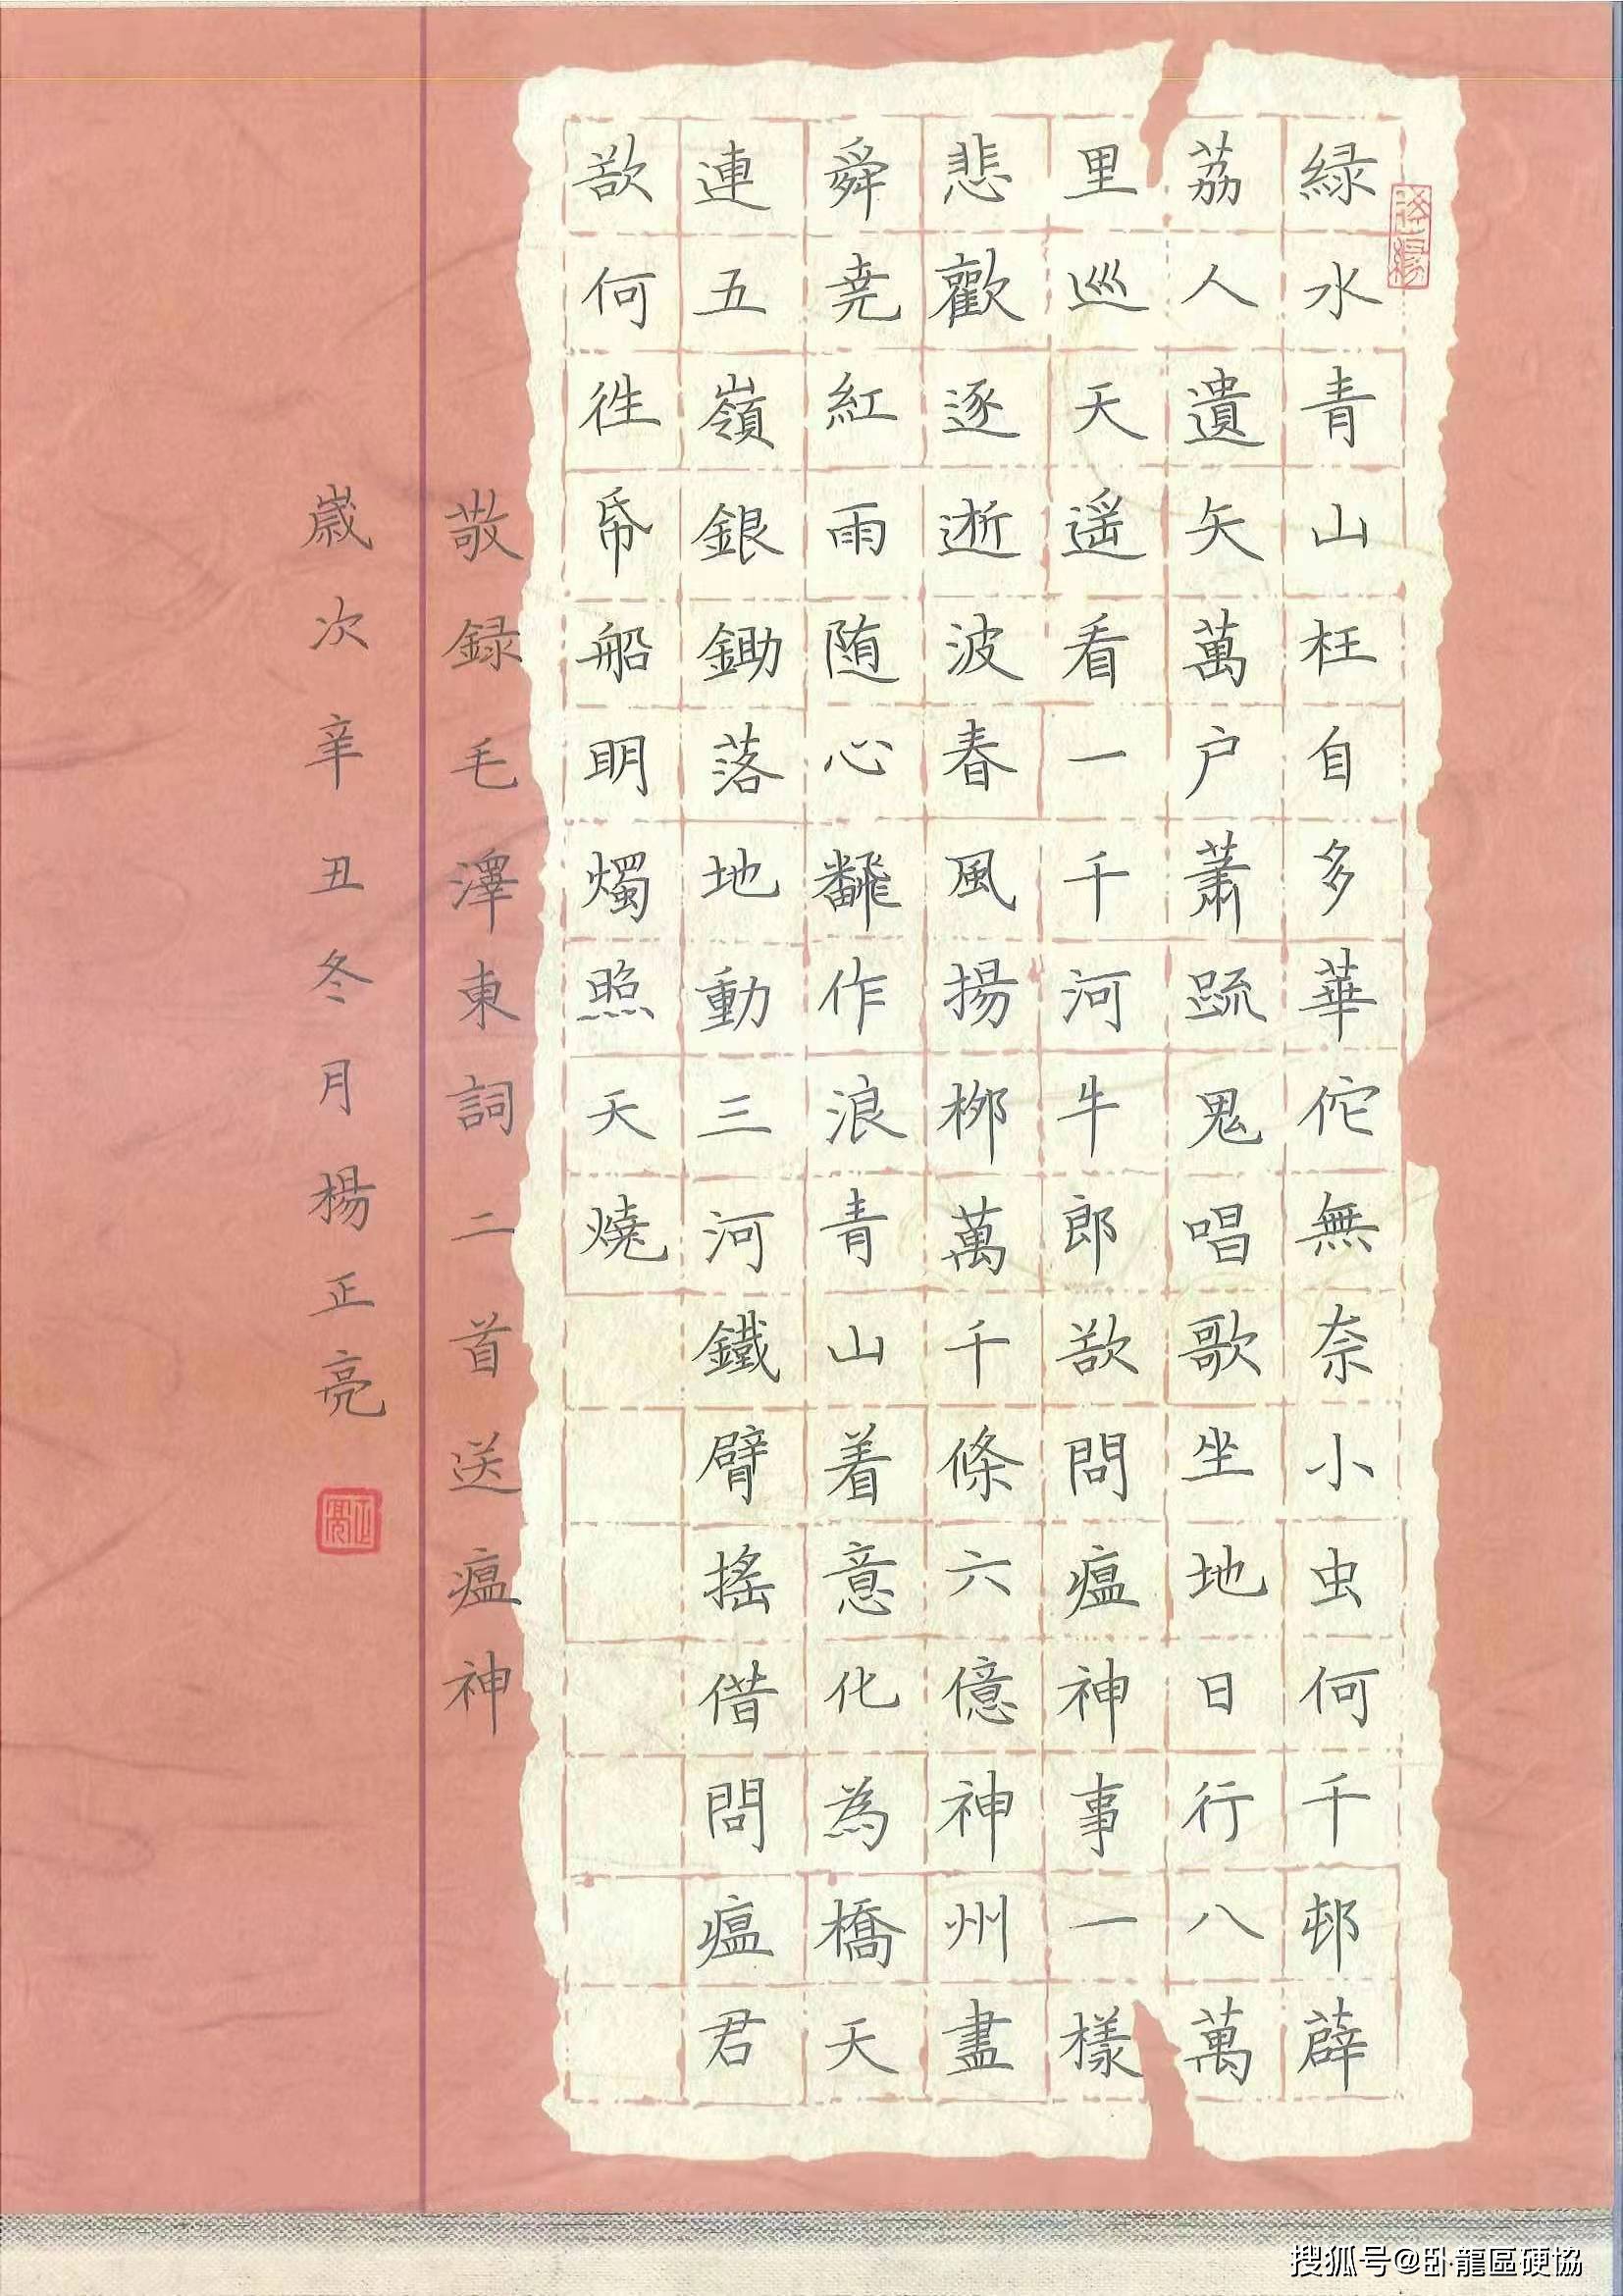 緑水青山枉自多華佗無奈小虫何千邨薜
荔人遺矢萬户蕭疏鬼唱歌坐地日行八萬
里巡天遥看一千河牛郎欲問瘟神事一樣
悲歡逐逝波春風揚栁萬千條六億神州盡
舜尭紅雨随心飜作浪青山着意化為橋天
連五嶺銀鋤落地動三河鐵臂搖借問瘟君
欲何往帋船明燭照天燒
敬録毛澤東詞二首送瘟神
嵗次辛丑冬月楊正亮
正亮
搜狐号@卧龍區硬協